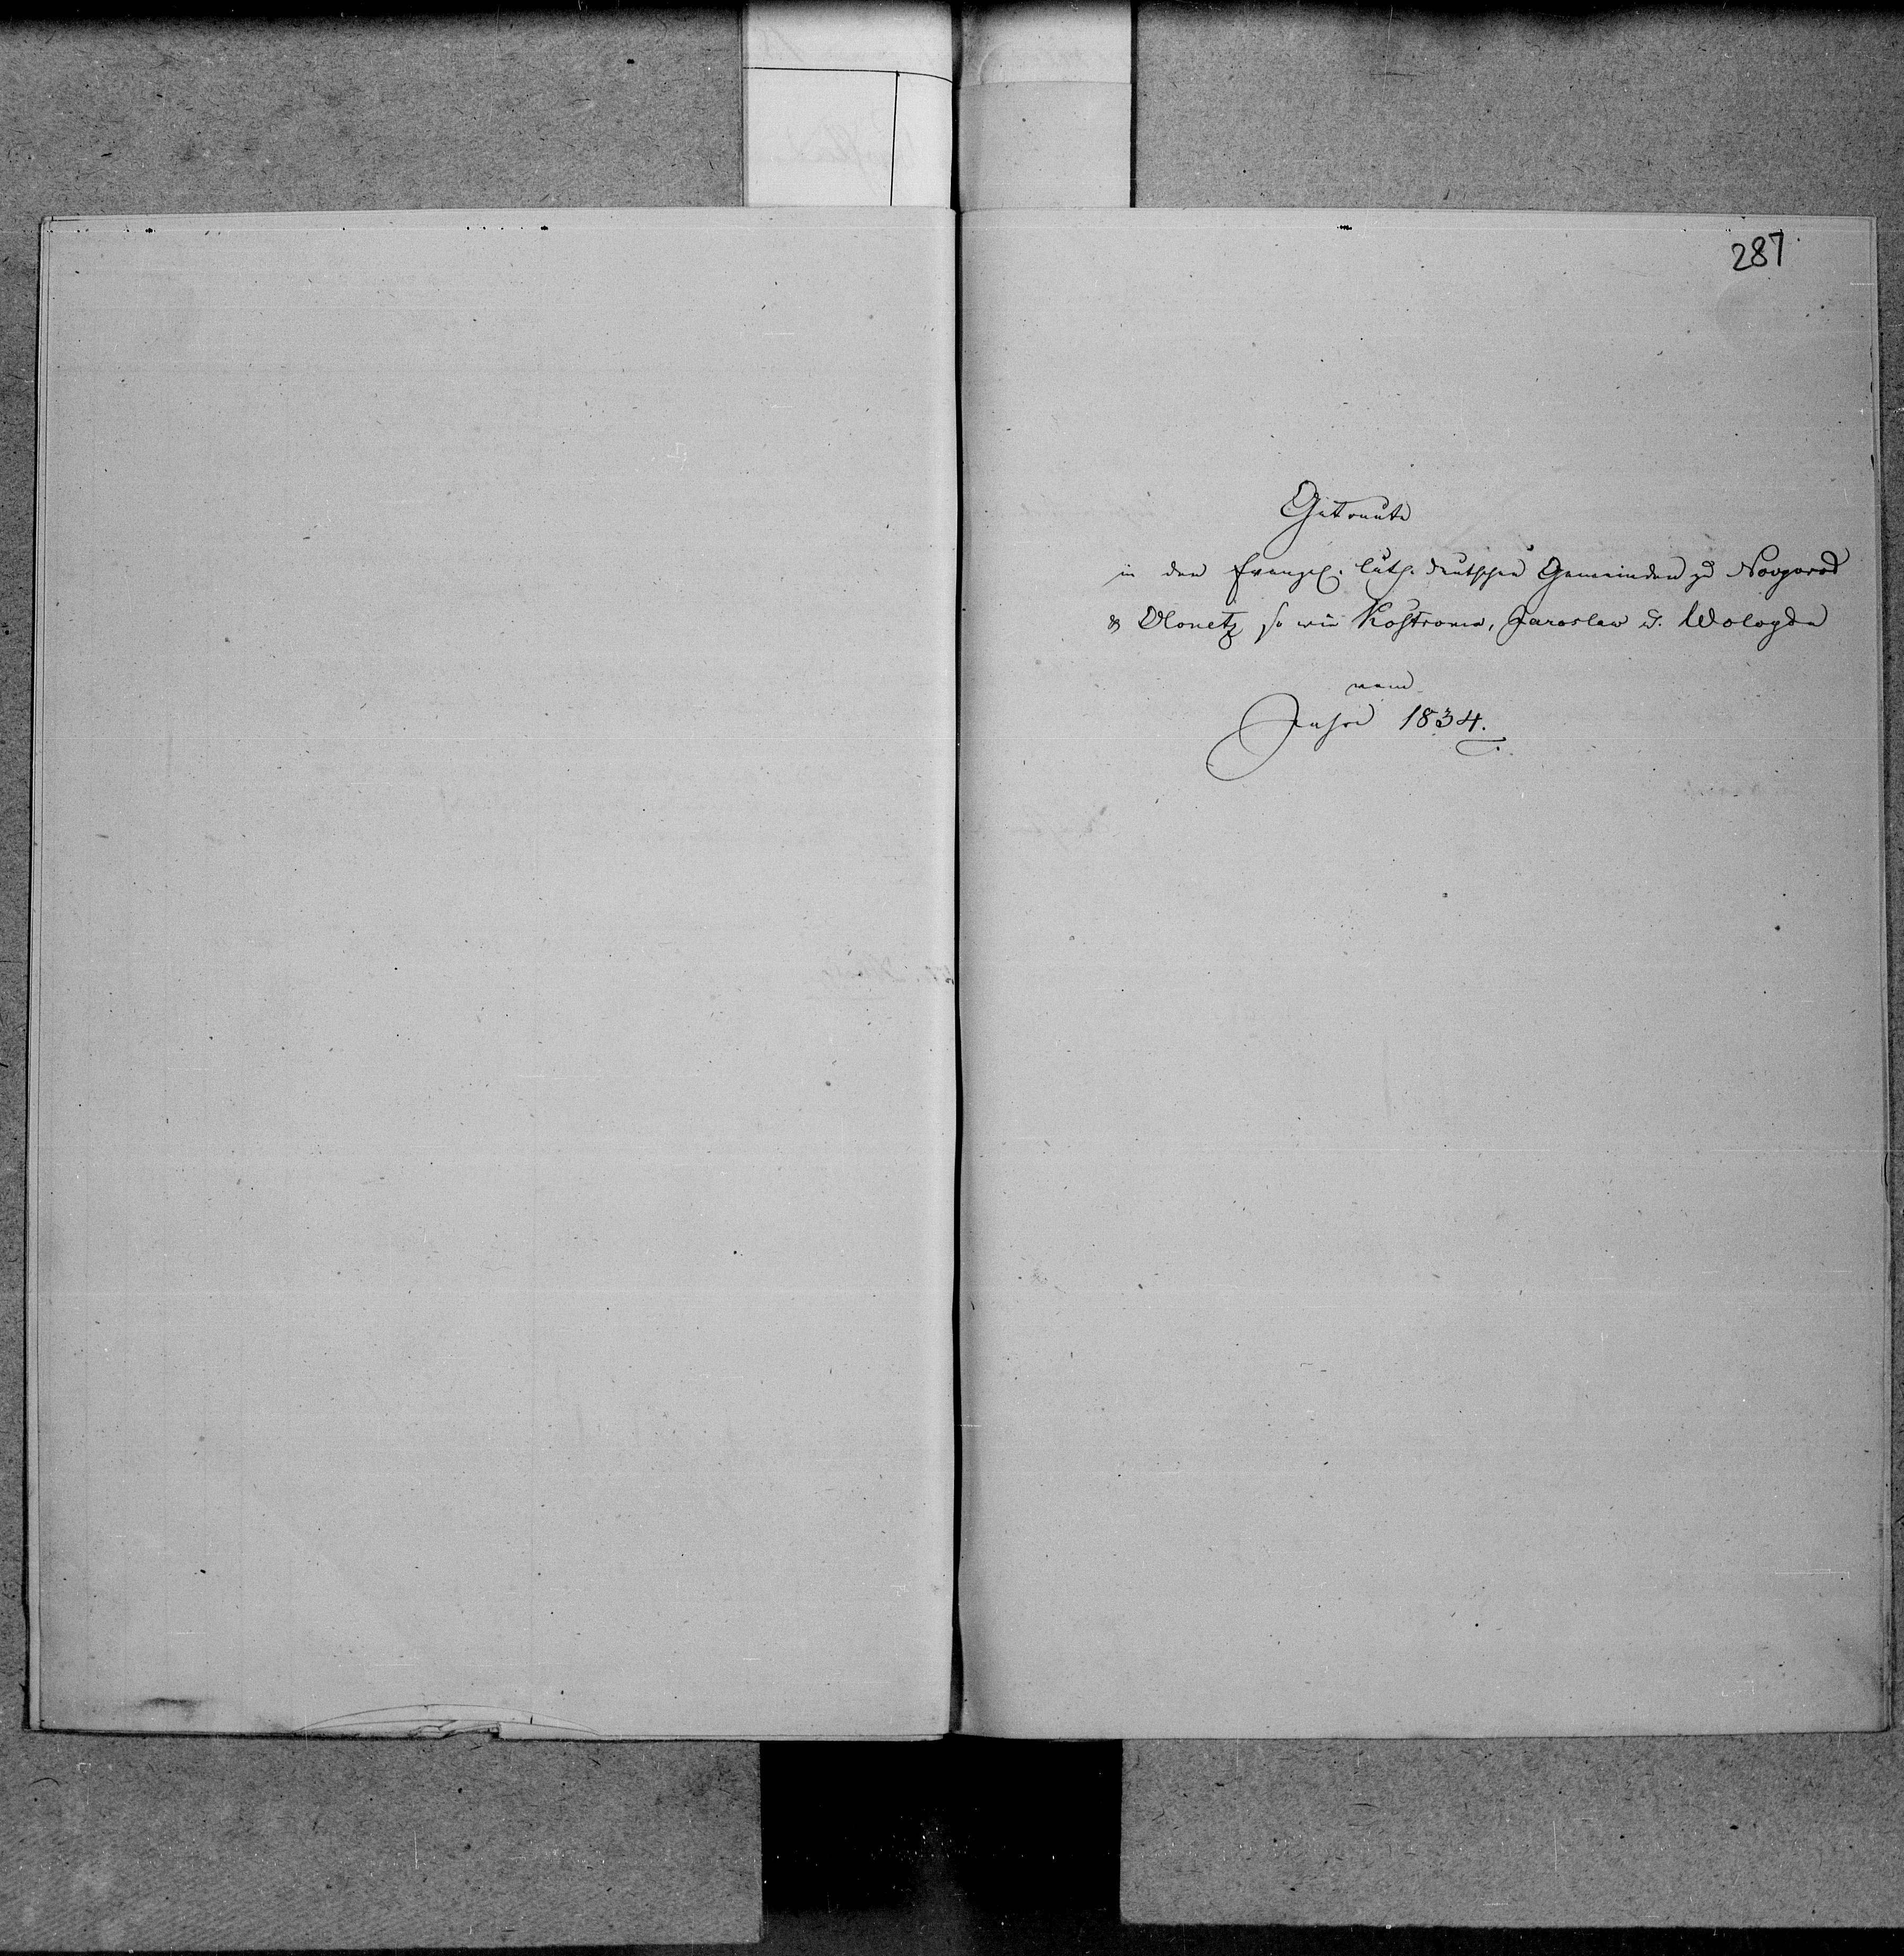 287
Getraute
in den Evangel. luth. deutschen Gemeinden zu Novgorod
& Olonetz so wie Kostroma, Jaroslaw u. Wologda
vom
Jahre 1834.